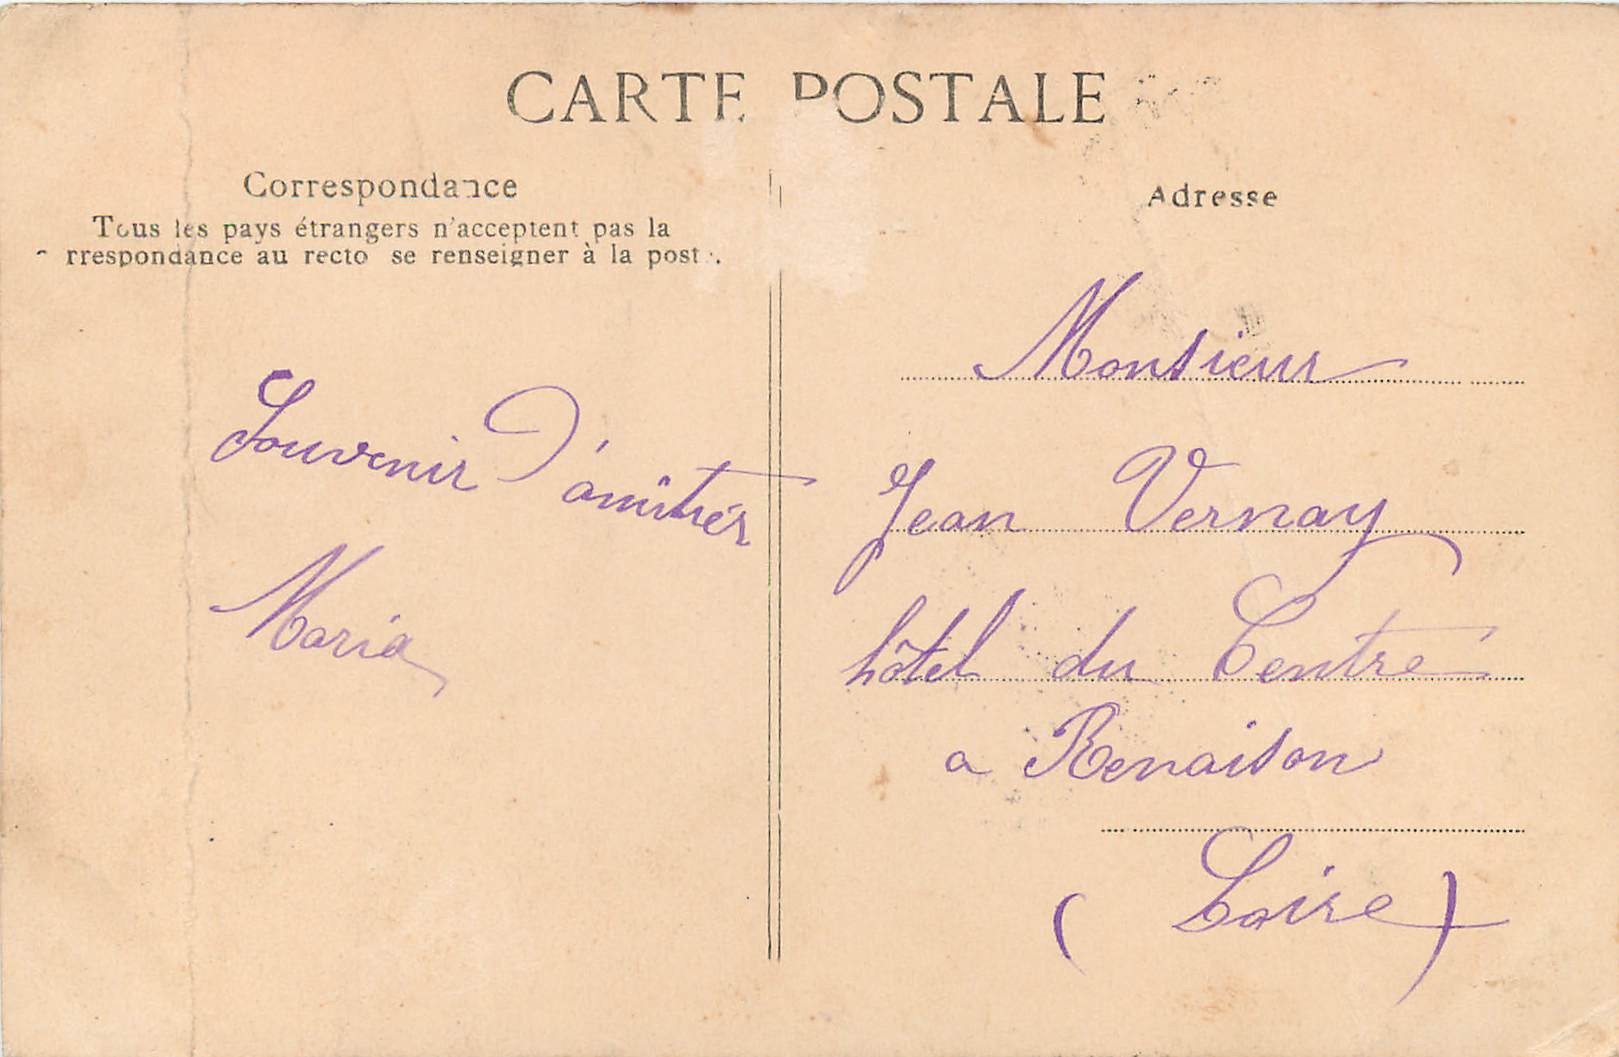 CARTE POSTALE
Correspondance
Tous les pays étrangers n'acceptent pas la
rrespondance au recto se renseigner à la poste.
Souvenir D'amitiér
Maria
Adresse
Monsieur
Jean Vernay
hôtel du Centre
a Renaison
(Loire)